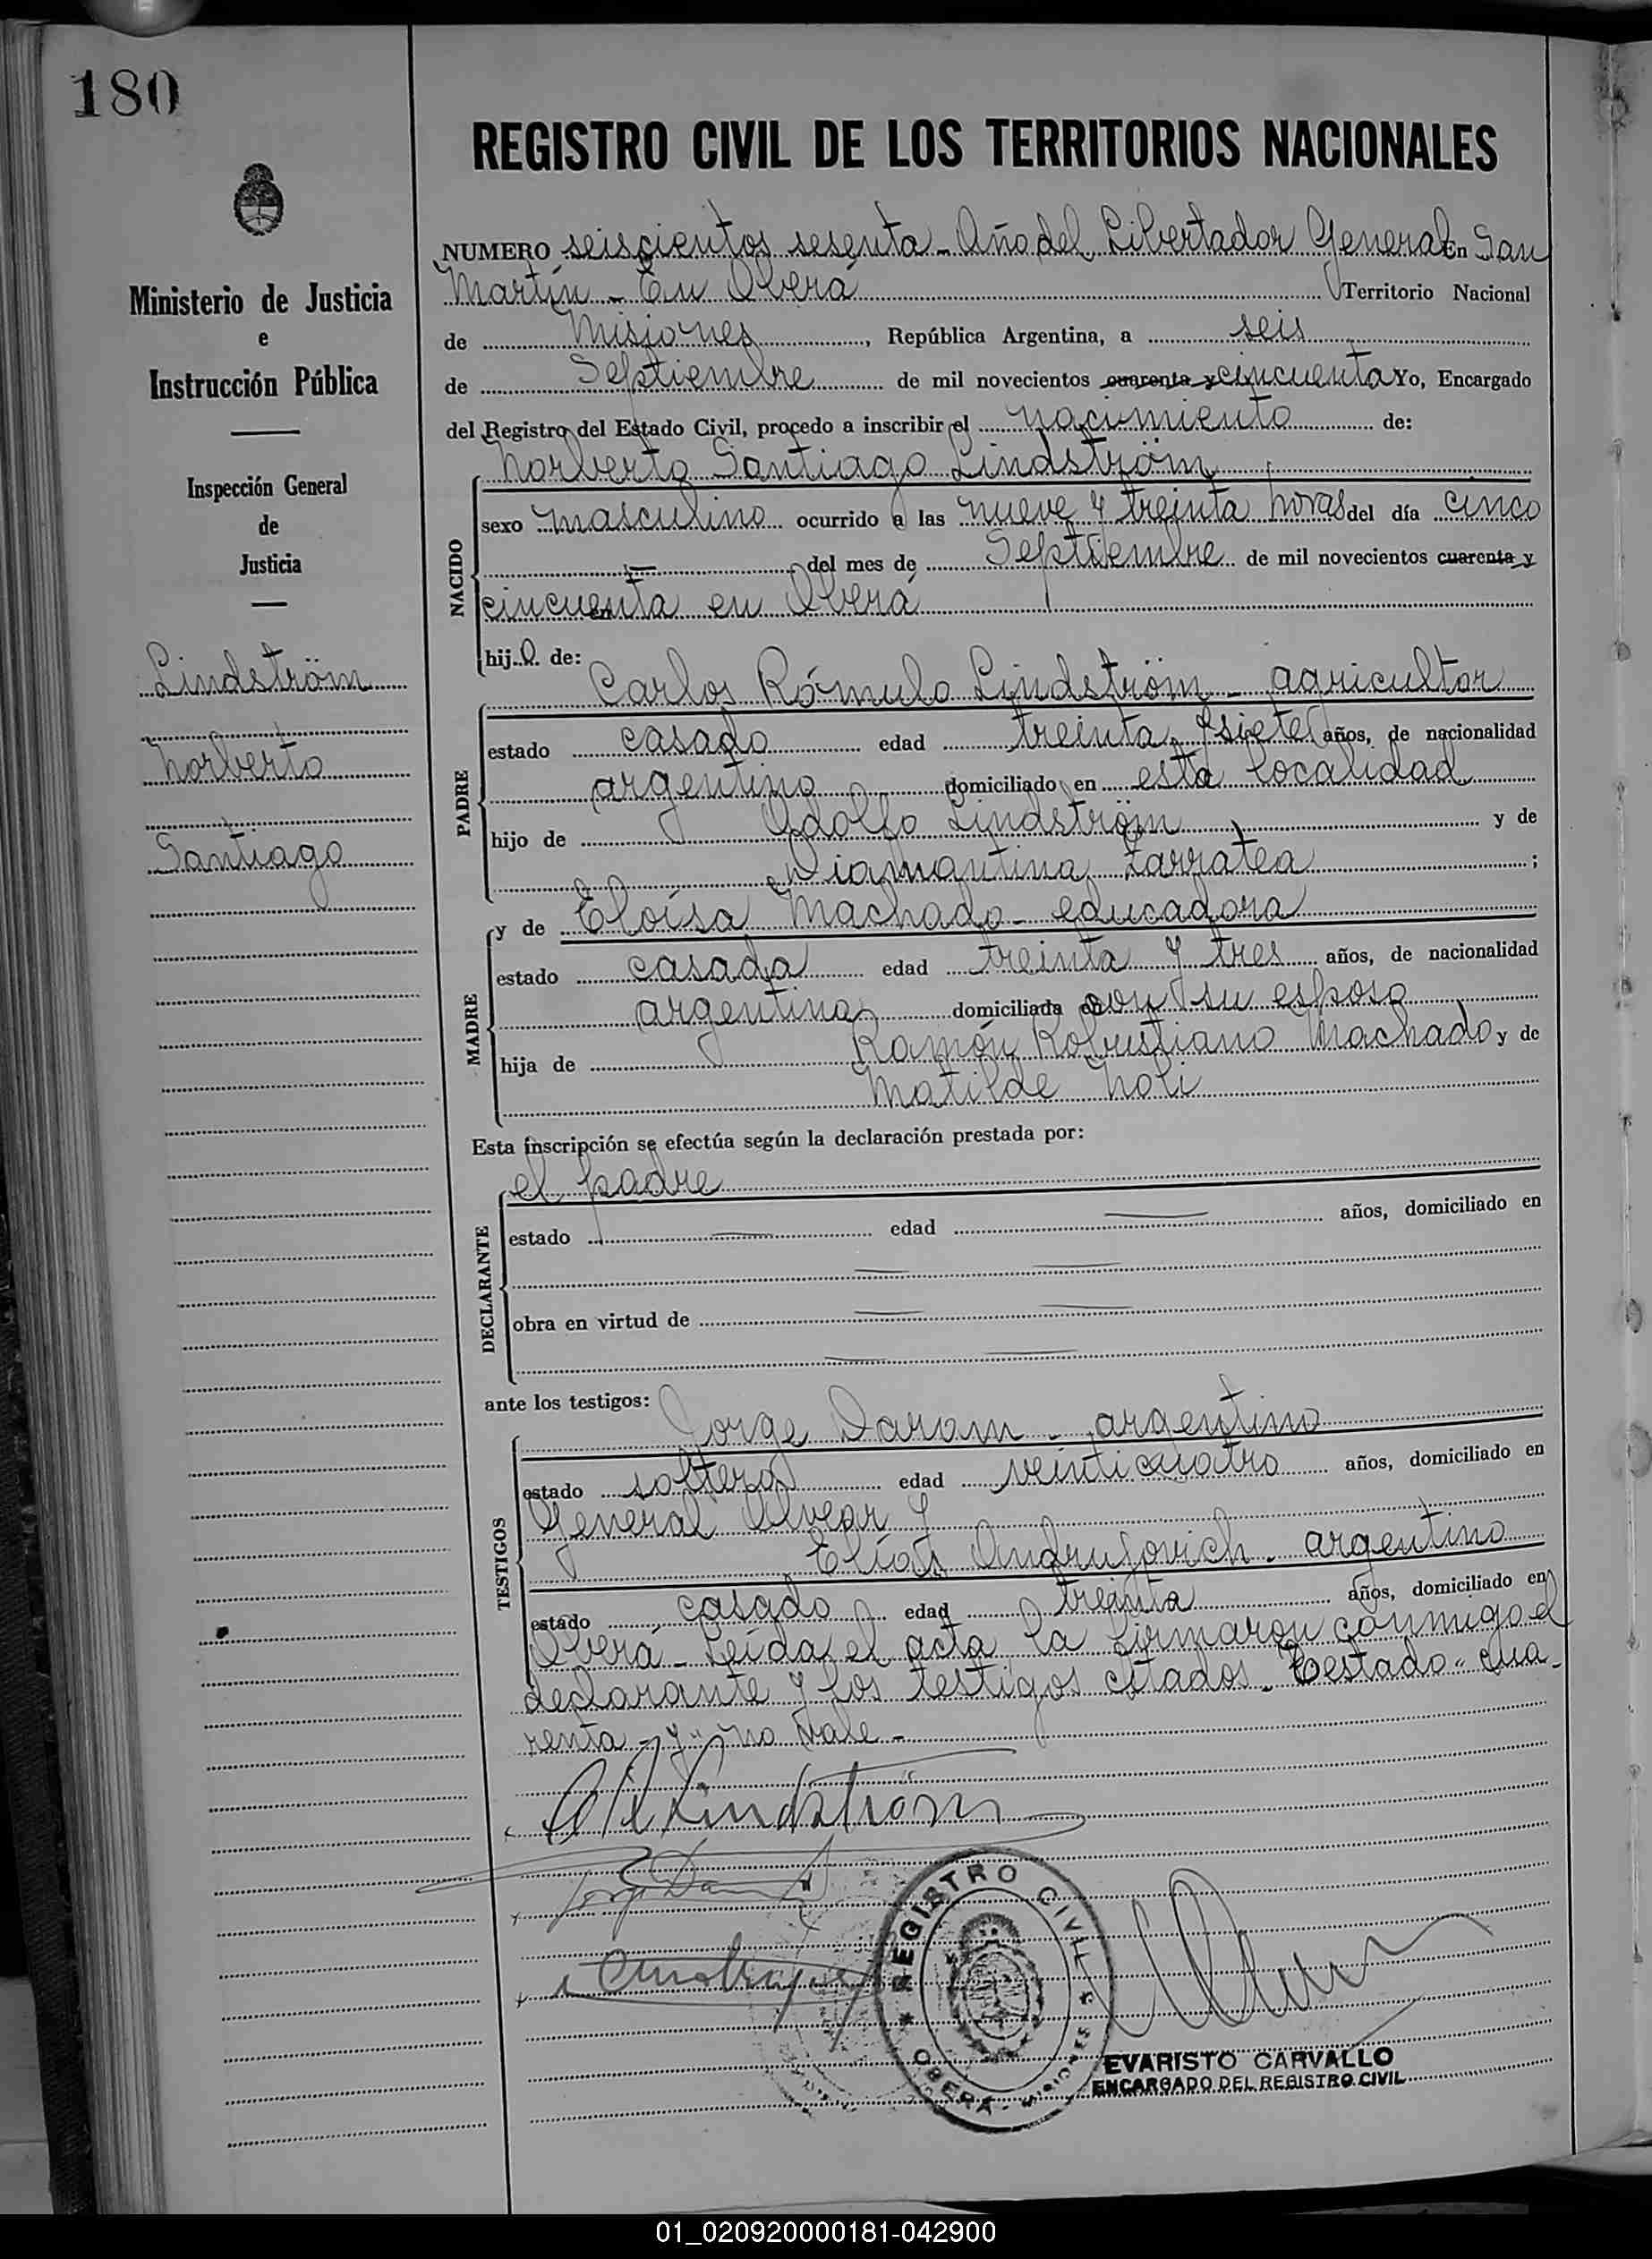 180
REGISTRO CIVIL DE LOS TERRITORIOS NACIONALES
Ministerio de Justicia
e
Instrucción Pública
Inspección General
de
Justicia
Lindström
Norberto
Santiago
NUMERO seiscientos sesenta - Año del Libertador General En San
Martín - En Oberá Territorio Nacional
de Misiones, República Argentina, a seis
de Septiembre de mil novecientos cuarenta y cincuenta Yo, Encargado
del Registro del Estado Civil, procedo a inscribir el nacimiento de:
Norberto Santiago Lindström
NACIDO
sexo masculino ocurrido a las nueve y treinta horas del día cinco
del mes de Septiembre de mil novecientos cuarenta y
cincuenta en Oberá
hijo de:
Carlos Rómulo Lindström - agricultor
PADRE
estado casado edad treinta y siete años, de nacionalidad
argentino domiciliado en esta localidad
hijo de Adolfo Lindström y de
Diamantina Zarratea;
MADRE
y de Eloísa Machado - educadora
estado casada edad treinta y tres años, de nacionalidad
argentina domiciliada con su esposo
hija de Ramón Robustiano Machado y de
Matilde Noli
Esta inscripción se efectúa según la declaración prestada por:
el padre
DECLARANTE
estado edad años, domiciliado en
obra en virtud de
ante los testigos:
Jorge Darom - argentino
TESTIGOS
estado soltero edad veinticuatro años, domiciliado en
General Alvear y
Elías - argentino
estado casado edad treinta años, domiciliado en
Oberá - Leída el acta la firmaron conmigo el
declarante y los testigos citados. Testado "cua-
renta - y" no vale -
Lindström
REGISTRO CIVIL
OBERÁ - MISIONES
EVARISTO CARVALLO
ENCARGADO DEL REGISTRO CIVIL
01_020920000181-042900